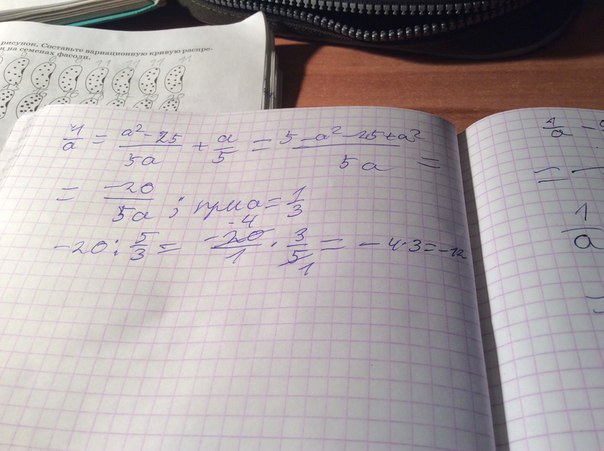 рисунок. Составьте вариационную кривую распре-
на семенах фасоли.
1/a = (a² - 25)/5a + a/5 = (5 - a² - 25 + a²)/5a =
= -20/5a ; при a = 1/3
-20 : 5/3 = -20/1 · 3/5 = -4·3 = -12
-4
1
1/a
=
1/a